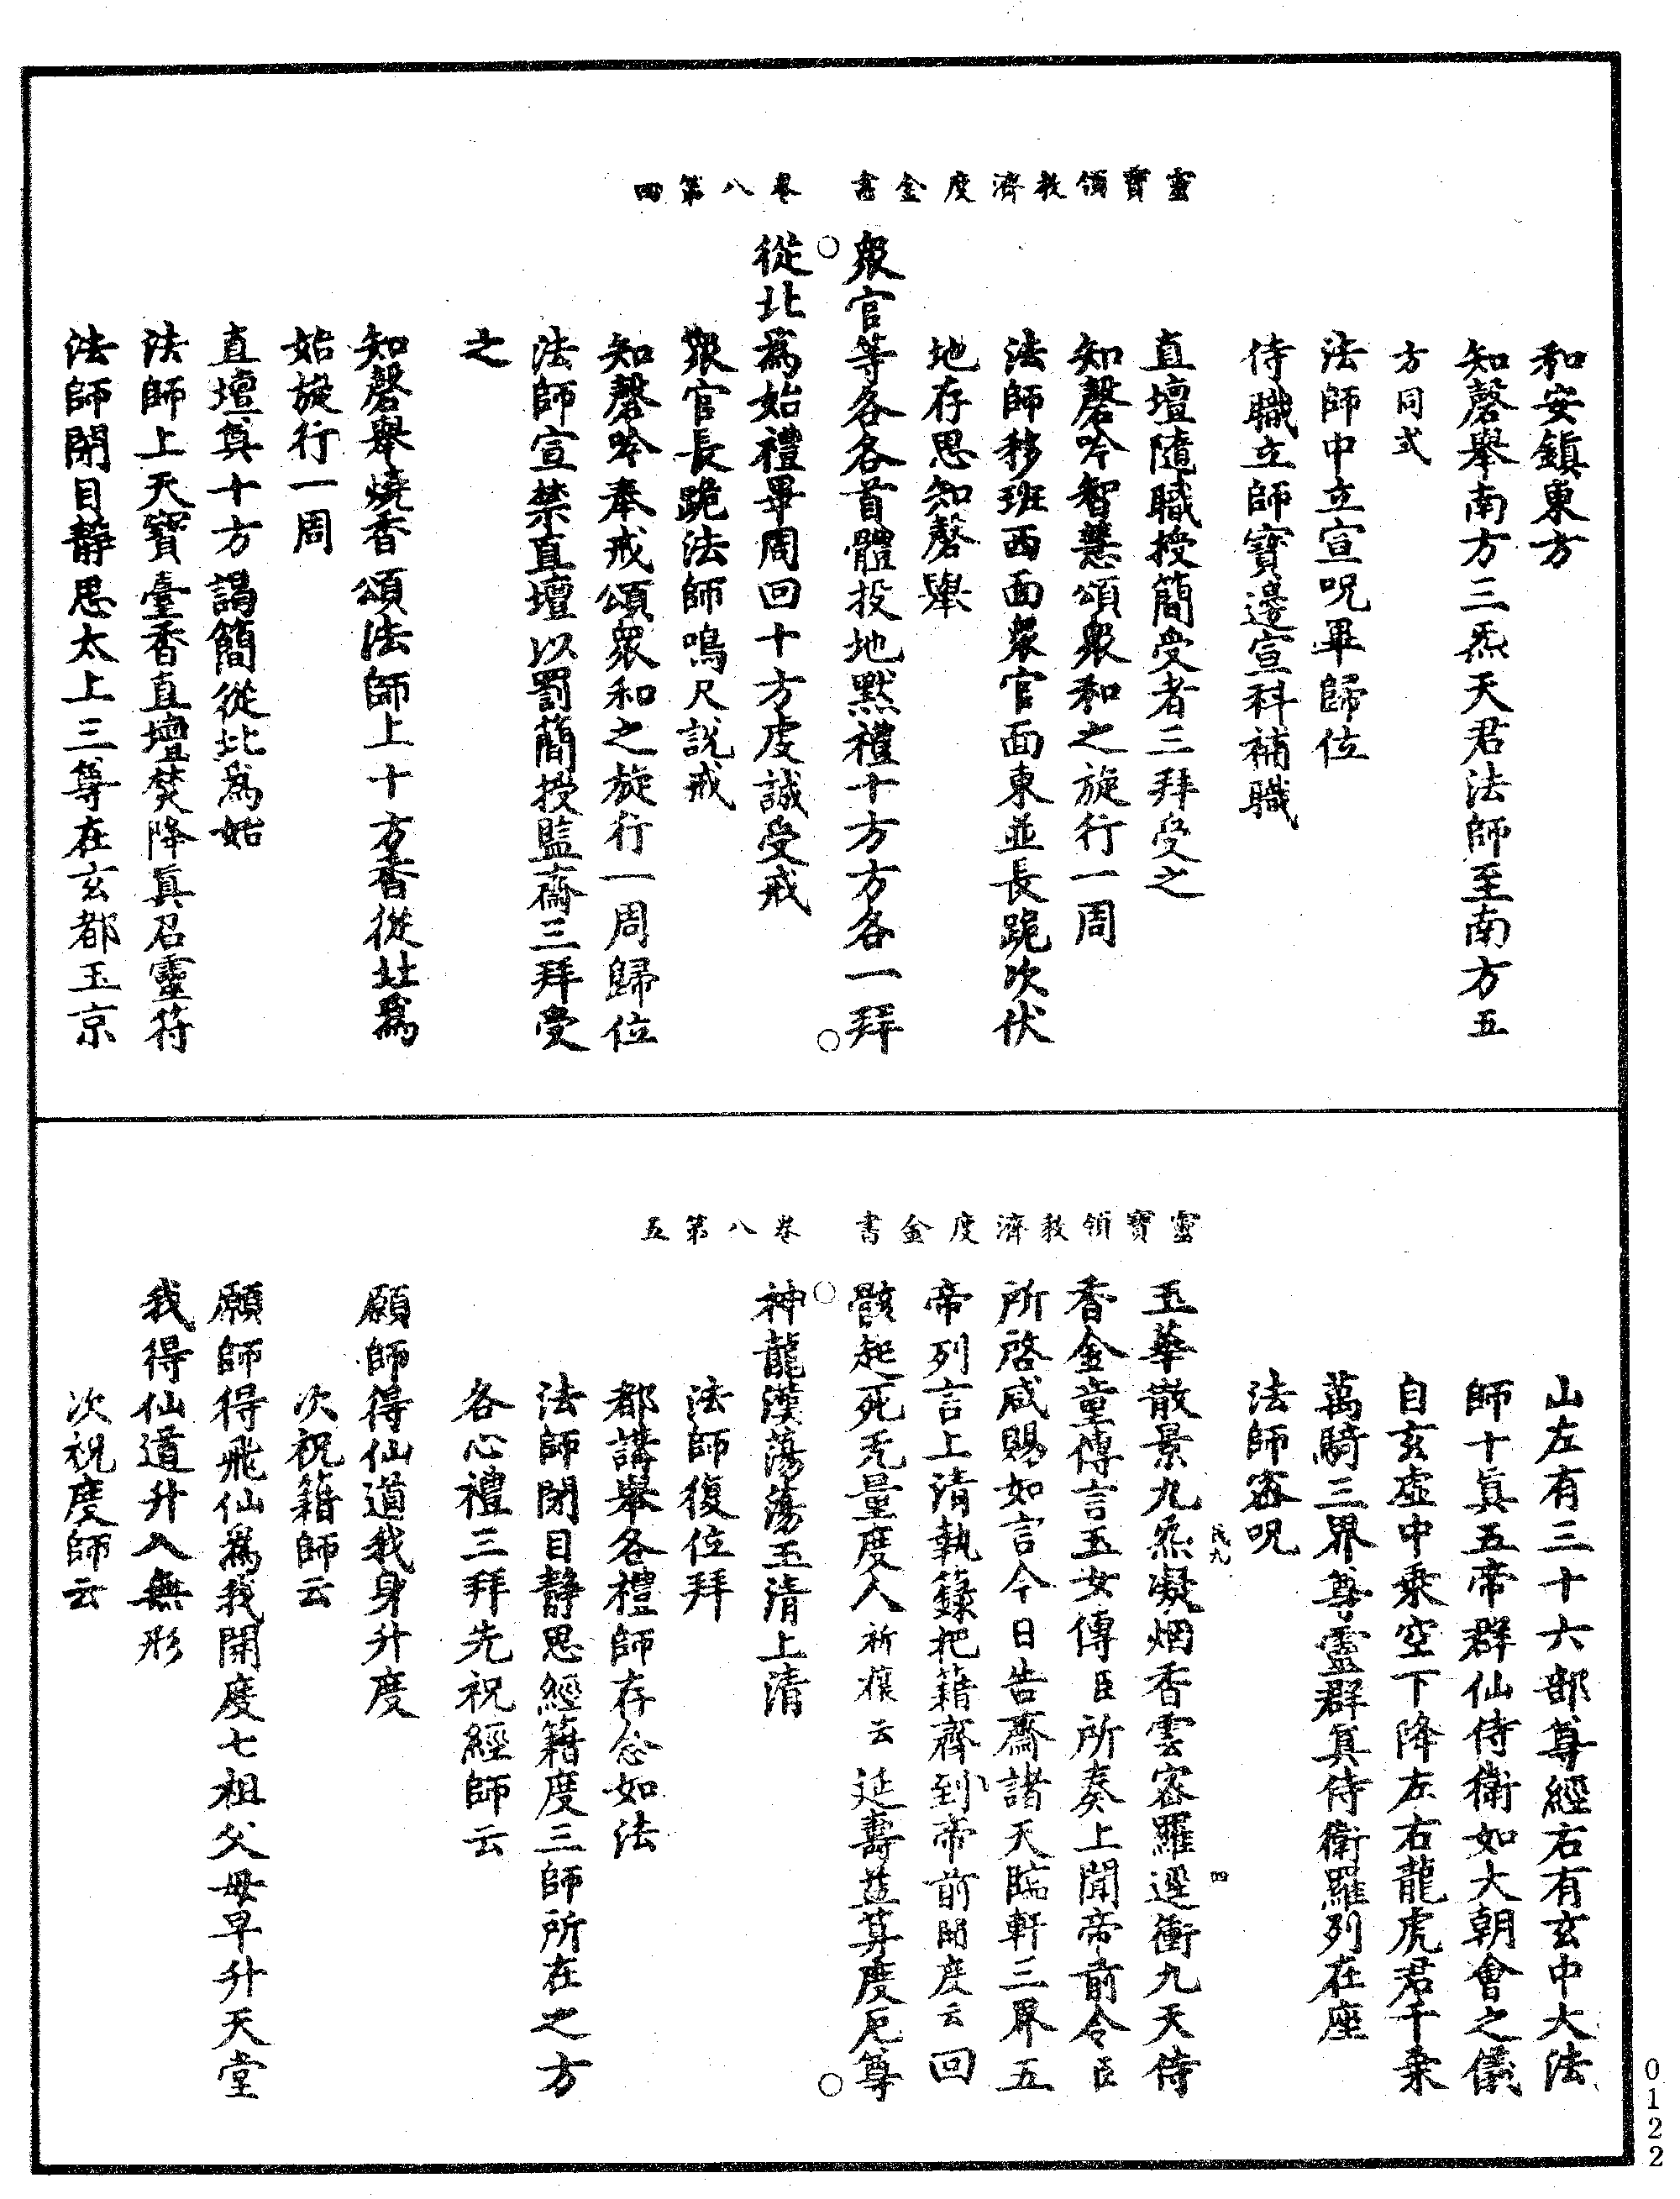 靈寶領教濟度金書　卷八第四
和安鎮東方
知磬舉南方三炁天君法師至南方五
方同式
法師中立宣呪畢歸位
侍職立師寶邊宣科補職
直壇隨職授簡受者三拜受之
知磬吟智慧頌衆和之旋行一周
法師移班西面衆官面東並長跪次伏
地存思知磬舉
衆官等各各首體投地默禮十方方各一拜
從北爲始禮畢周回十方虔誠受戒
衆官長跪法師鳴尺說戒
知磬吟奉戒頌衆和之旋行一周歸位
法師宣禁直壇以罰簡授監齋三拜受
之
知磬舉燒香頌法師上十方香從北爲
始旋行一周
直壇奠十方謁簡從北爲始
法師上天寶臺香直壇焚降眞召靈符
法師閉目靜思太上三尊在玄都玉京
靈寶領教濟度金書　卷八第五
山左有三十六部尊經右有玄中大法
師十眞五帝群仙侍衛如大朝會之儀
自玄虛中乘空下降左右龍虎君千乘
萬騎三界尊靈群眞侍衛羅列在座
法師密呪
民九　四
玉華散景九炁凝烟香雲密羅逕衝九天侍
香金童傳言玉女傳臣所奏上聞帝前令臣
所啓咸賜如言今日告齋諸天臨軒三界五
帝列言上清執籙把籍齊到帝前開度云回
骸起死无量度人祈禳云延壽益算度厄尊
神龍漢蕩蕩玉清上清
法師復位拜
都講舉各禮師存念如法
法師閉目靜思經籍度三師所在之方
各心禮三拜先祝經師云
願師得仙道我身升度
次祝籍師云
願師得飛仙爲我開度七祖父母早升天堂
我得仙道升入無形
次祝度師云
0122